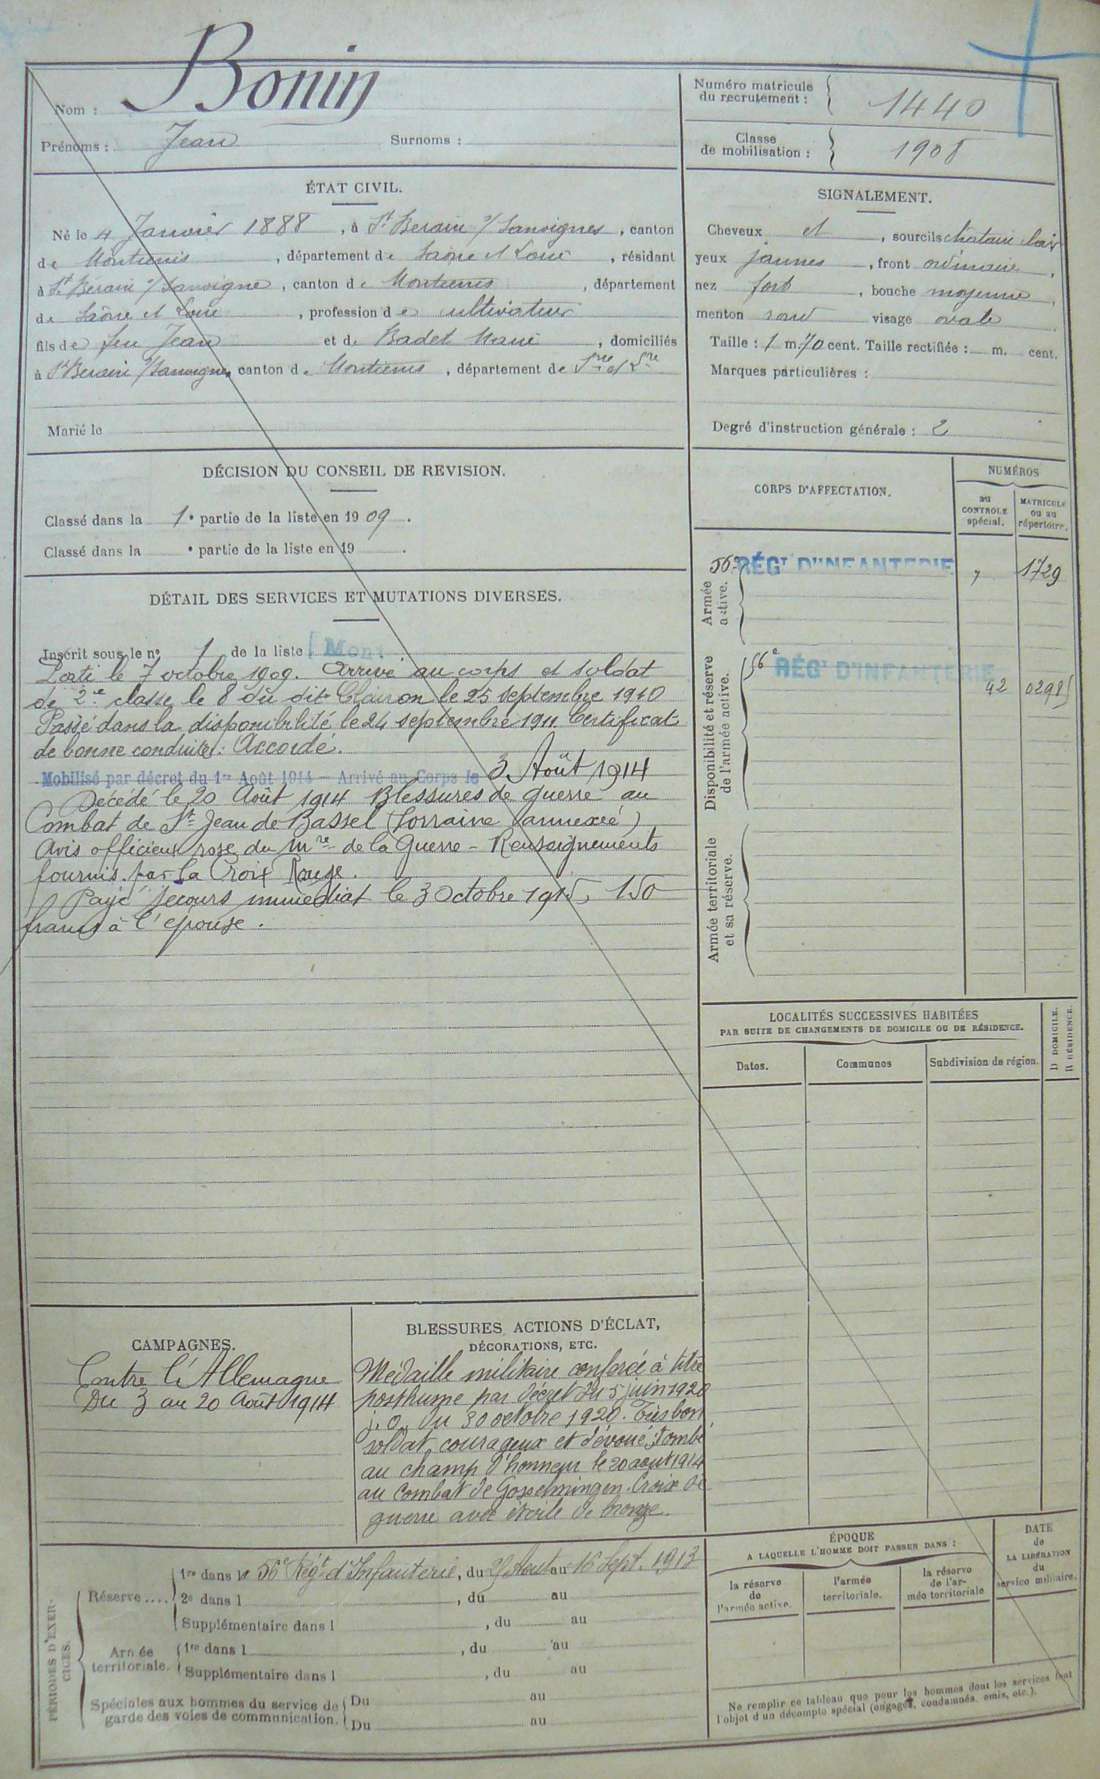 Nom : Bonin
Prénoms : Jean Surnoms :
Numéro matricule du recrutement : 1440
Classe de mobilisation : 1908
ÉTAT CIVIL.
Né le 4 Janvier 1888, à St Berain s/ Sanvignes, canton
de Montcenis, département de Saône et Loire, résidant
à St Berain s/ Sanvigne, canton de Montcenis, département
de Saône et Loire, profession de cultivateur
fils de feu Jean et de Badet Marie, domiciliés
à St Berain s/Sanvigne, canton de Montcenis, département de Sne et Lre
Marié le
SIGNALEMENT.
Cheveux et, sourcils chatain clair
yeux jaunes, front ordinaire,
nez fort, bouche moyenne,
menton rond visage ovale
Taille : 1 m. 70 cent. Taille rectifiée : m. cent.
Marques particulières :
Degré d'instruction générale : 2
DÉCISION DU CONSEIL DE REVISION.
Classé dans la 1e partie de la liste en 1909.
Classé dans la e partie de la liste en 19 .
CORPS D'AFFECTATION.
NUMÉROS
au CONTROLE spécial.
MATRICULE ou au répertoire.
Armée active.
56e RÉGT D'INFANTERIE 7 1729
Disponibilité et réserve de l'armée active.
56e RÉGT D'INFANTERIE 42 0298
Armée territoriale et sa réserve.
DÉTAIL DES SERVICES ET MUTATIONS DIVERSES.
Inscrit sous le no 1 de la liste Mont
Parti le 7 octobre 1909. Arrivé au corps et soldat
de 2e classe le 8 du dit Clairon le 25 septembre 1910
Passé dans la disponibilité le 24 septembre 1911 Certificat
de bonne conduite : Accordé.
Mobilisé par décret du 1er Août 1914 – Arrivé au Corps le 3 Août 1914
Décédé le 20 Août 1914 Blessures de guerre au
Combat de St Jean de Bassel (Lorraine annexée)
Avis officieux rose du Mre de la Guerre - Renseignements
fournis par la Croix Rouge.
Payé secours immédiat le 3 Octobre 1915, 150
francs à l'epouse.
LOCALITÉS SUCCESSIVES HABITÉES
PAR SUITE DE CHANGEMENTS DE DOMICILE OU DE RÉSIDENCE.
Dates. Communes Subdivision de région. D DOMICILE. R RÉSIDENCE.
CAMPAGNES.
Contre l'Allemagne
Du 3 au 20 Août 1914
BLESSURES, ACTIONS D'ÉCLAT,
DÉCORATIONS, ETC.
Médaille militaire conférée à titre
posthume par décret du 5 juin 1920
J.O. du 30 octobre 1920. Très bon
soldat, courageux et dévoué, tombé
au champ d'honneur le 20 août 1914
au combat de Gosselmingen. Croix de
guerre avec étoile de bronze.
PÉRIODES D'EXERCICES.
Réserve ....
1re dans le 56e Régt d'Infanterie, du au 16 Sept. 1913
2e dans l , du au
Supplémentaire dans l , du au
Armée territoriale.
1re dans l , du au
Supplémentaire dans l , du au
Spéciales aux hommes du service de garde des voies de communication.
Du au
Du au
ÉPOQUE
A LAQUELLE L'HOMME DOIT PASSER DANS :
la réserve de l'armée active.
l'armée territoriale.
la réserve de l'armée territoriale
DATE de LA LIBÉRATION du service militaire.
Ne remplir ce tableau que pour les hommes dont les services font
l'objet d'un décompte spécial (engagés, condamnés, omis, etc.).